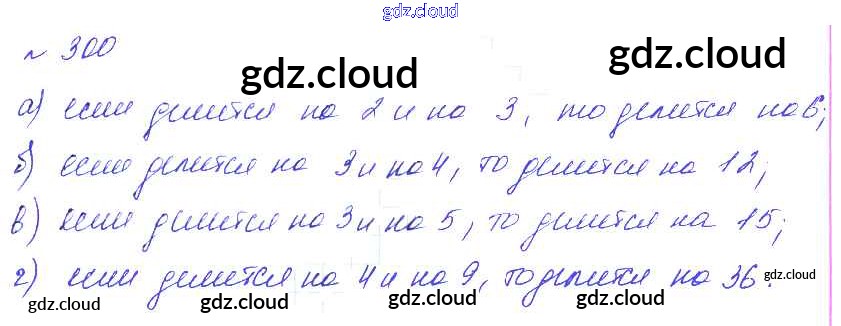 gdz.cloud
№ 300
gdz.cloud gdz.cloud
а) если делится на 2 и на 3, то делится на 6;
gdz.cloud gdz.cloud
б) если делится на 3 и на 4, то делится на 12;
в) если делится на 3 и на 5, то делится на 15;
г) если делится на 4 и на 9, то делится на 36.
gdz.cloud
gdz.cloud gdz.cloud gdz.cloud gdz.cloud